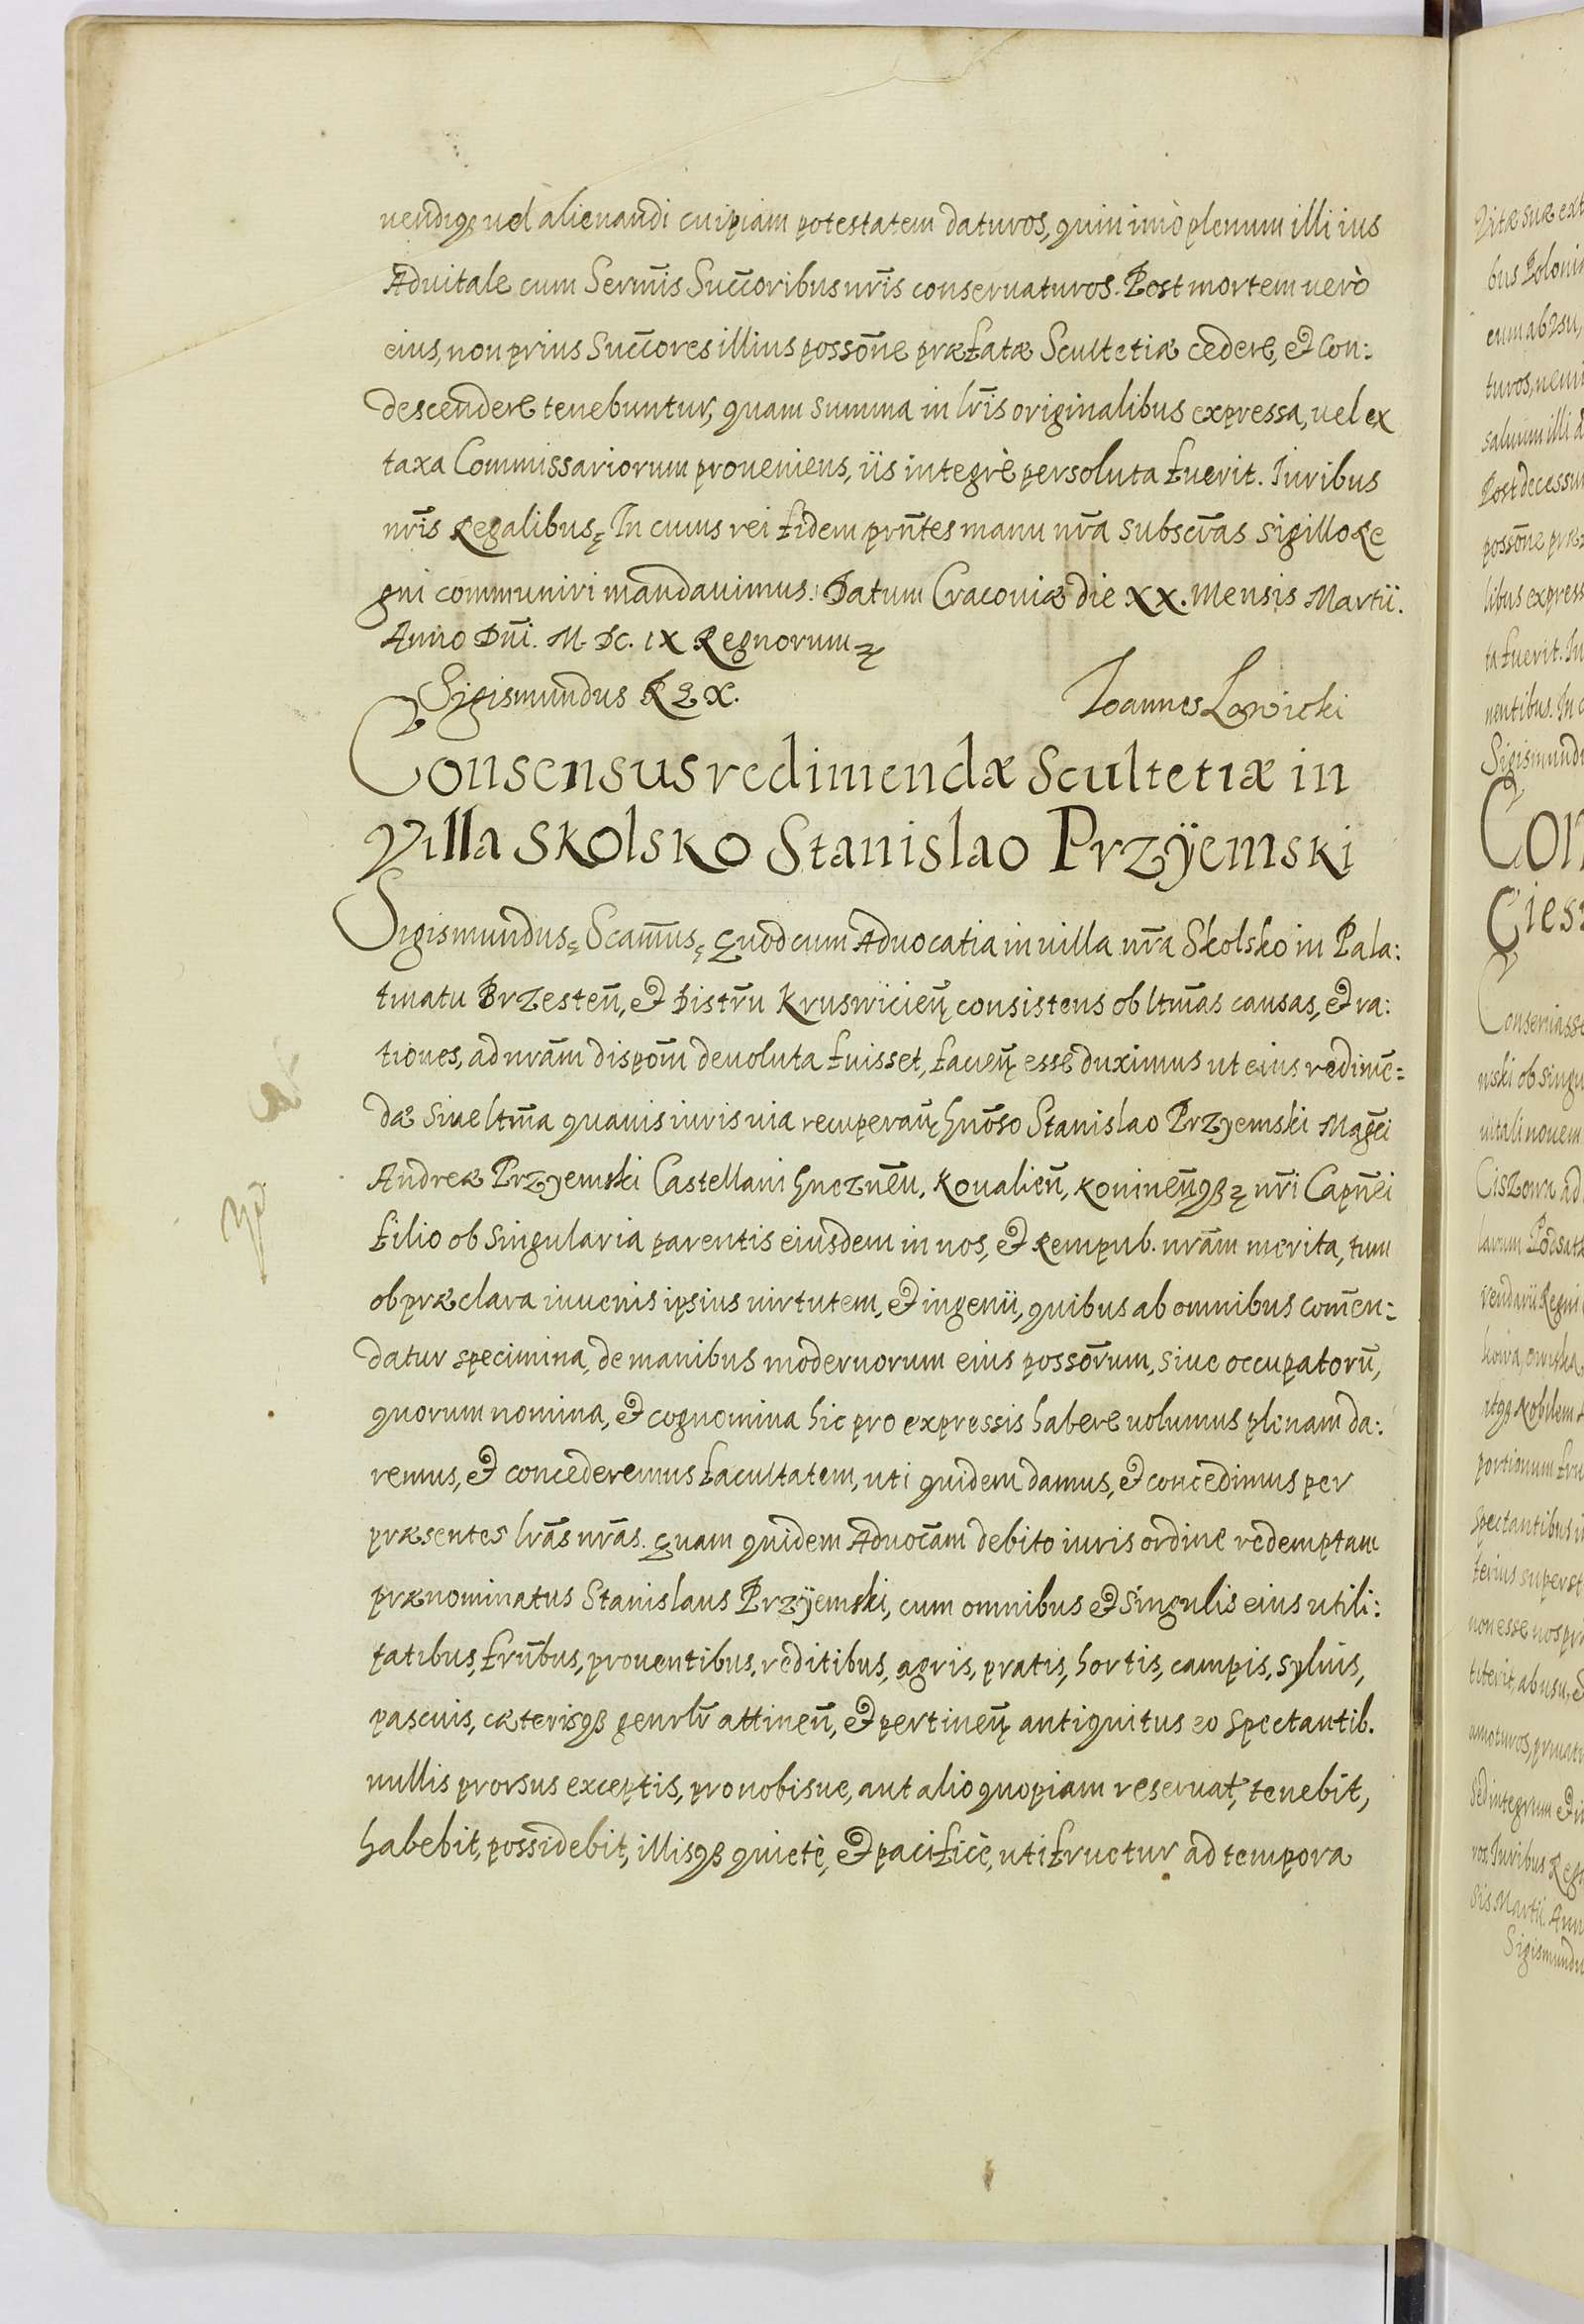 uendiq₃ uel alienandi cuipiam potestatem daturos, quin imò plenum illi ius
Aduitale cum Sermīs Succ̄oribus nr̄is conseruaturos. Post mortem uerò
eius, non prius Succ̄ores illius possōne præfatæ Scultetiæ cedere, et con:
descendere tenebuntur, quam summa in lr̄is originalibus expressa, uel ex
taxa Commissariorum proueniens, iis integrè persoluta fuerit. Iuribus
nr̄is Regalibus ꝫ In cuius rei fidem prn̄tes manu nr̄a subscr̄as sigillo Re
gni communiri mandauimus. Datum Cracouiæ die XX. Mensis Martii.
Anno Dn̄i. M. DC. IX Regnorum ꝫ
Sigismundus Rex.
Ioannes Lowicki
Consensus redimendæ Scultetiæ in
Villa Skolsko Stanislao Przÿemski
Sigismundus ꝫ Scam̄us ꝫ Quod cum Aduocatia in uilla nr̄a Skolsko in Pala:
tinatu Brzesten̄, et Distr̄u Kruswicien̄ consistens ob ltm̄as causas, et ra:
tiones, ad nr̄am dispōm deuoluta fuisset, facien̄ esse duximus ut eius redimē=
dæ siue ltm̄a quauis iuris uia recuperan̄ Gn̄oso Stanislao Przyemski Maḡci
Andreæ Przyemski Castellani Gneznēn, Koualien̄, Koninen̄q₃ ꝫ nr̄i Capn̄ei
filio ob singularia parentis eiusdem in nos, et Rempub. nr̄am merita, tum
ob præclara iuuenis ipsius uirtutem, et ingenii, quibus ab omnibus com̄en:
datur specimina, de manibus modernorum eius possōrum, siue occupatorū,
quorum nomina, et cognomina hic pro expressis habere uolumus plenam da:
remus, et concederemus facultatem, uti quidem damus, et concedimus per
præsentes lr̄as nr̄as. Quam quidem Aduocāam debito iuris ordine redemptam
prænominatus Stanislaus Przÿemski, cum omnibus et singulis eius utili:
tatibus, frūbus, prouentibus, reditibus, agris, pratis, hortis, campis, syluis,
pascuis, cæterisq₃ genrlr̄ attinen̄, et pertinen̄ antiquitus eo spectantib.
nullis prorsus exceptis, pro nobisue, aut alio quopiam reseruat, tenebit,
habebit, possidebit, illisq₃ quietè, et pacificè, uti fruetur ad tempora